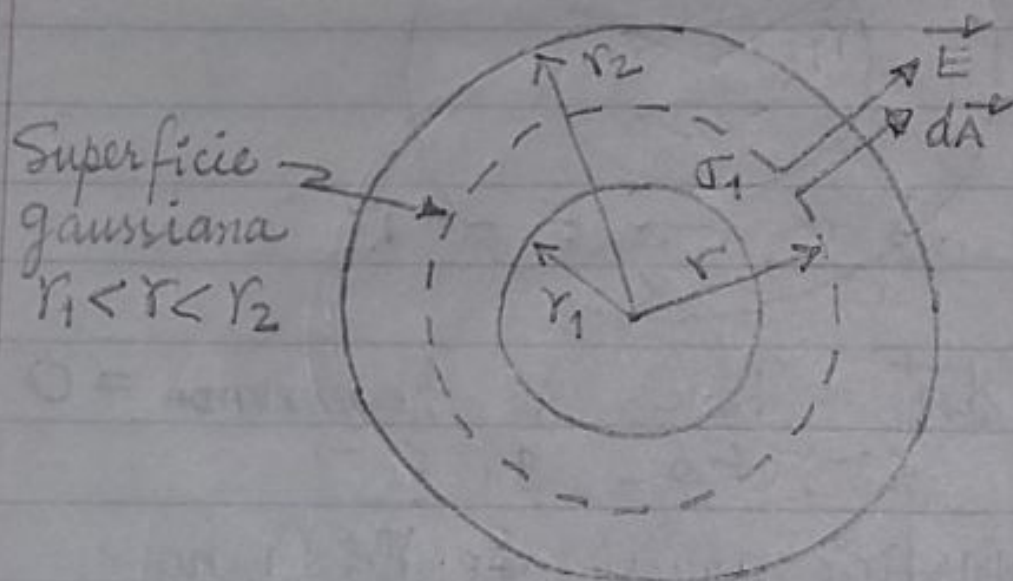 Superfície
gaussiana
r₁ < r < r₂
r₂
σ₁
E⃗
dA⃗
r₁
r
= 0